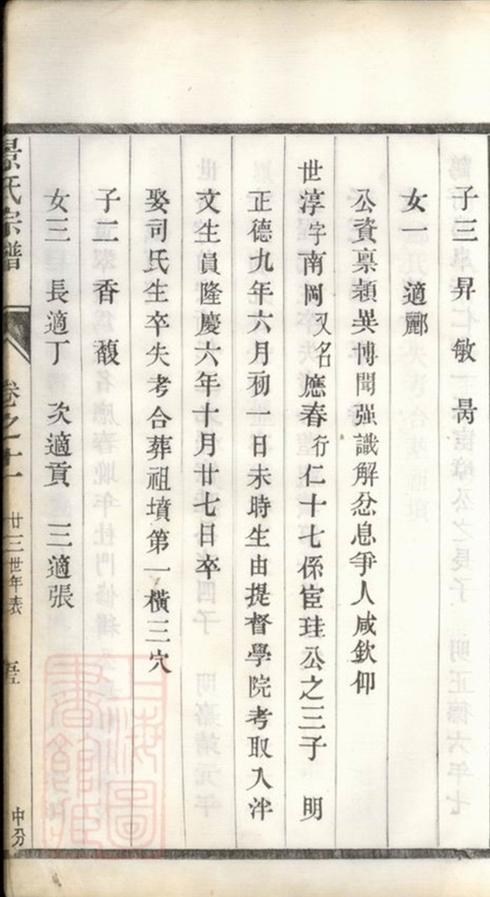 子三 昇 敏 昺
女一 適酈
公資稟穎異博聞强識解忿息爭人咸欽仰
世淳字南岡又名應春行仁十七係宦珪公之三子 明
正德九年六月初一日未時生由提督學院考取入泮
文生員隆慶六年十月廿七日卒
娶司氏生卒失考合葬祖墳第一橫三穴
子二 香 馥
女三 長適丁 次適貢 三適張
氏宗譜 卷之十一 廿三世年表 中分
上海圖書館藏